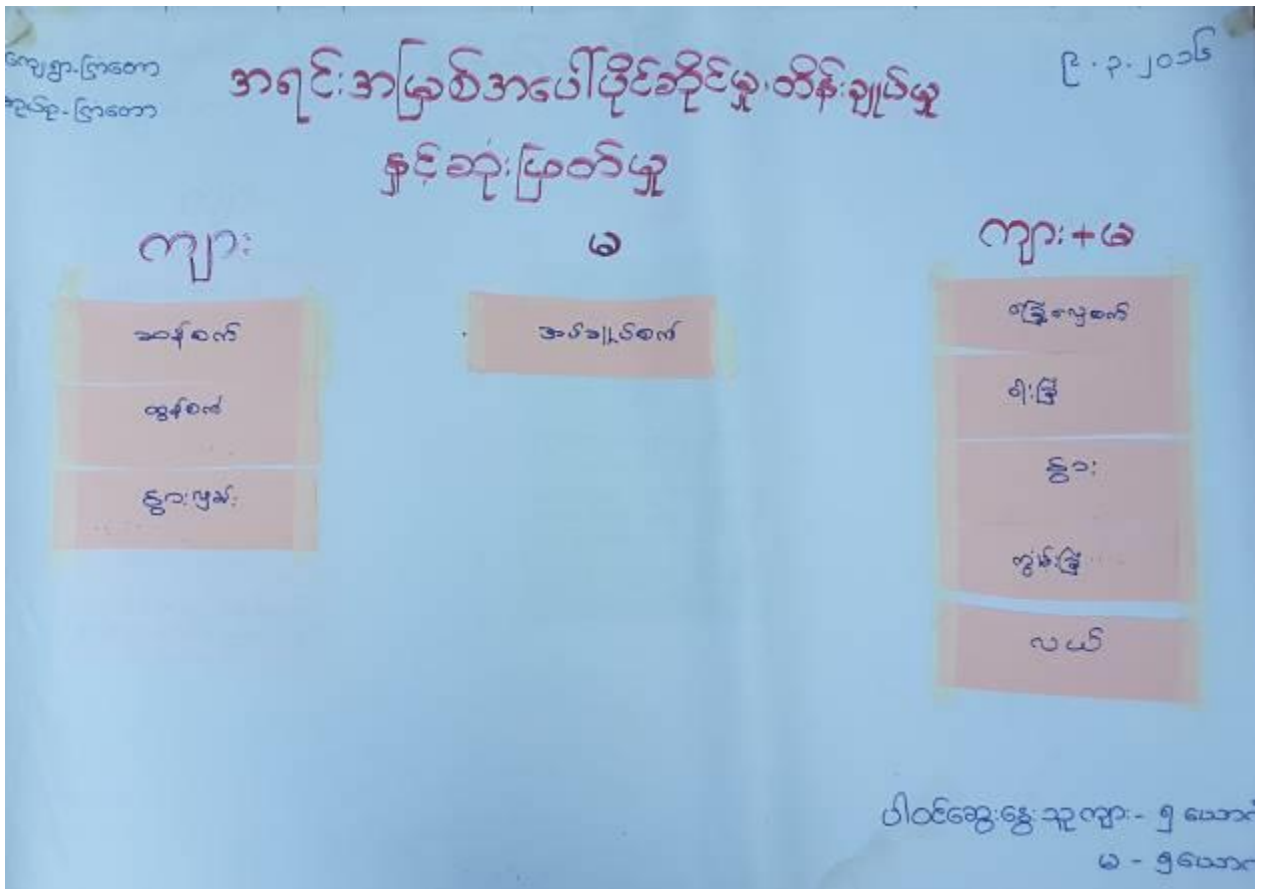 ကျေးရွာ-ကြာတော
အုပ်စု-ကြာတော
၉.၃.၂၀၁၆
အရင်းအမြစ်အပေါ်ပိုင်ဆိုင်မှု၊ထိန်းချုပ်မှု
နှင့်ဆုံးဖြတ်မှု
ကျား
မ
ကျား+မ
ဆန်စက်
ထွန်စက်
နွားလှည်း
အပ်ချုပ်စက်
ခြွေလှေ့စက်
ဝါးခြံ
နွား
ကွမ်းခြံ
လယ်
ပါဝင်ဆွေးနွေးသူကျား- ၅ ယောက်
မ - ၅ယောက်